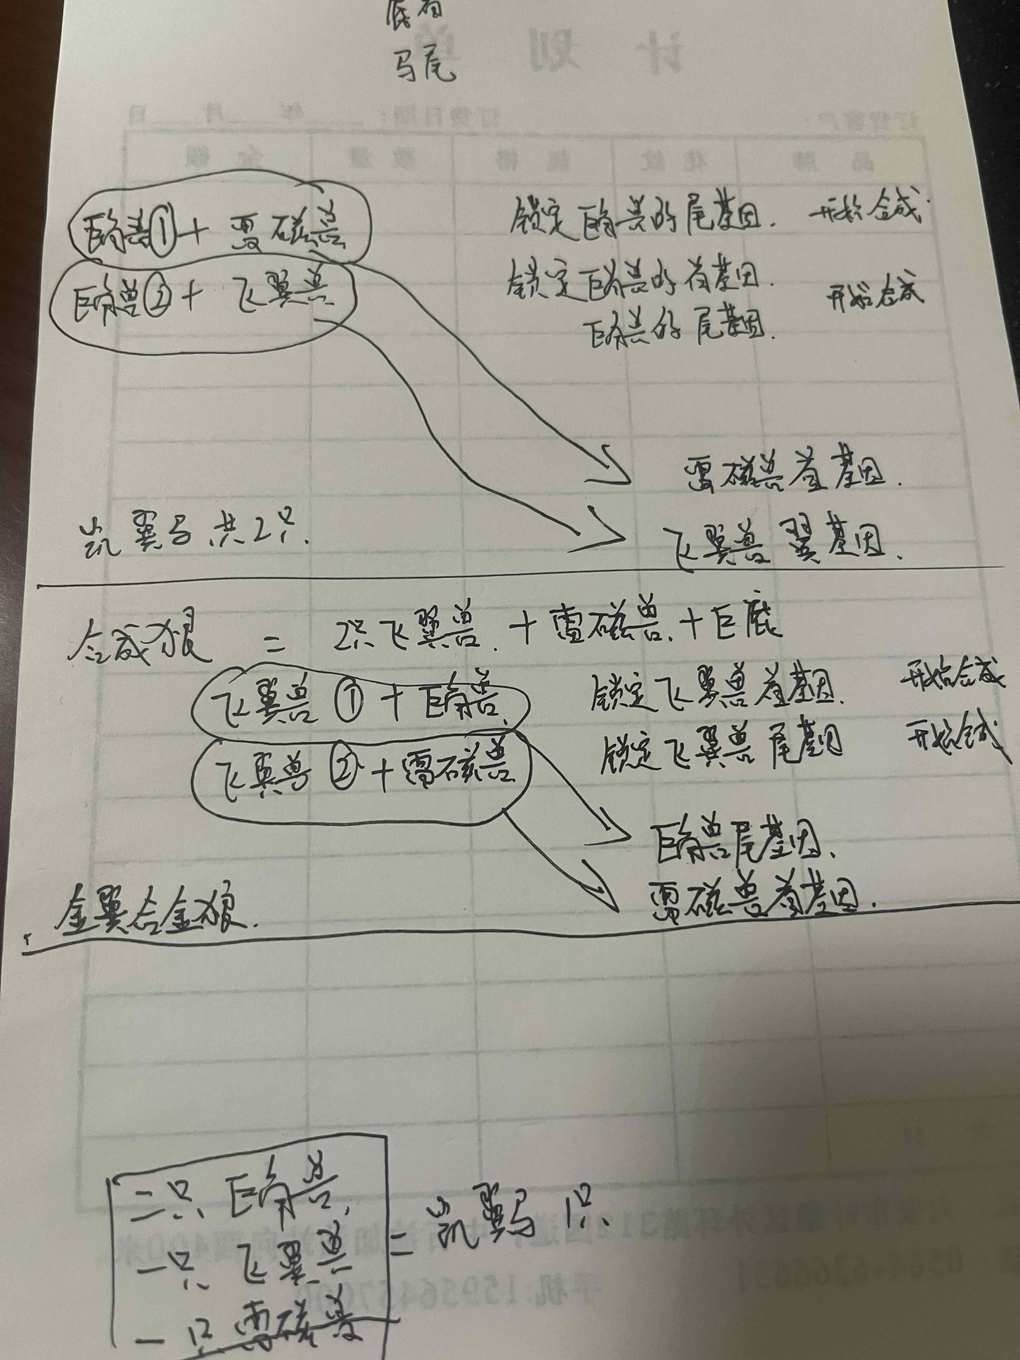 底有
马尾
巨角兽①+雷磁兽
锁定巨角兽的尾基因. 开始合成.
巨角兽②+飞翼兽
锁定巨角兽的首基因. 开始合成
巨角兽的尾基因.
雷磁兽首基因.
凯翼马共2只.
飞翼兽翼基因.
合成狼=2只飞翼兽+雷磁兽+巨鹿
飞翼兽①+巨角兽.
锁定飞翼兽首基因. 开始合成
飞翼兽②+雷磁兽
锁定飞翼兽尾基因 开始合成
巨角兽尾基因.
雷磁兽首基因.
金翼合金狼.
二只巨角兽.
一只飞翼兽
=凯翼马1只.
一只雷磁兽